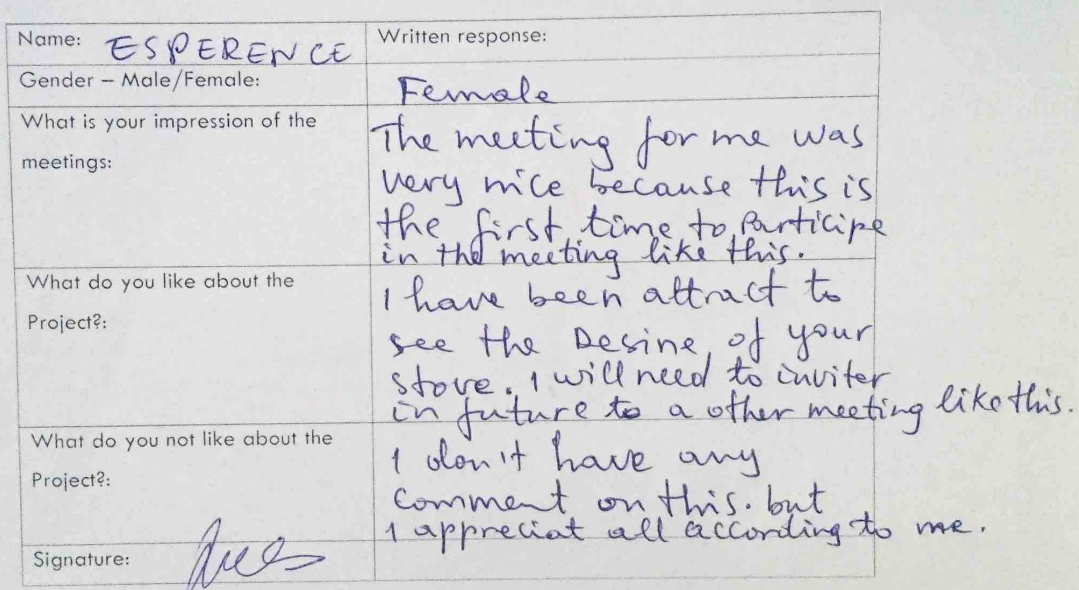 Name: ESPERENCE
Written response:
Gender – Male/Female:
Female
What is your impression of the
meetings:
The meeting for me was
very nice because this is
the first time to Participe
in the meeting like this.
What do you like about the
Project?:
I have been attract to
see the Desine of your
stove. I will need to inviter
in future to a other meeting like this.
What do you not like about the
Project?:
I don't have any
comment on this. but
I appreciat all according to me.
Signature: